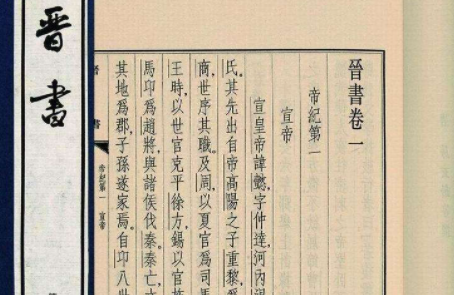 晉書卷一
帝紀第一
宣帝
宣皇帝諱懿,字仲達,河內溫
氏。其先出自帝高陽之子重黎,爲
商,世序其職。及周,以夏官爲司馬
王時,以世官克平徐方,錫以官族
馬卬爲趙將,與諸侯伐秦。秦亡,立
其地爲郡,子孫遂家焉。自卬八世
晉書
帝紀第一 宣帝
晉書